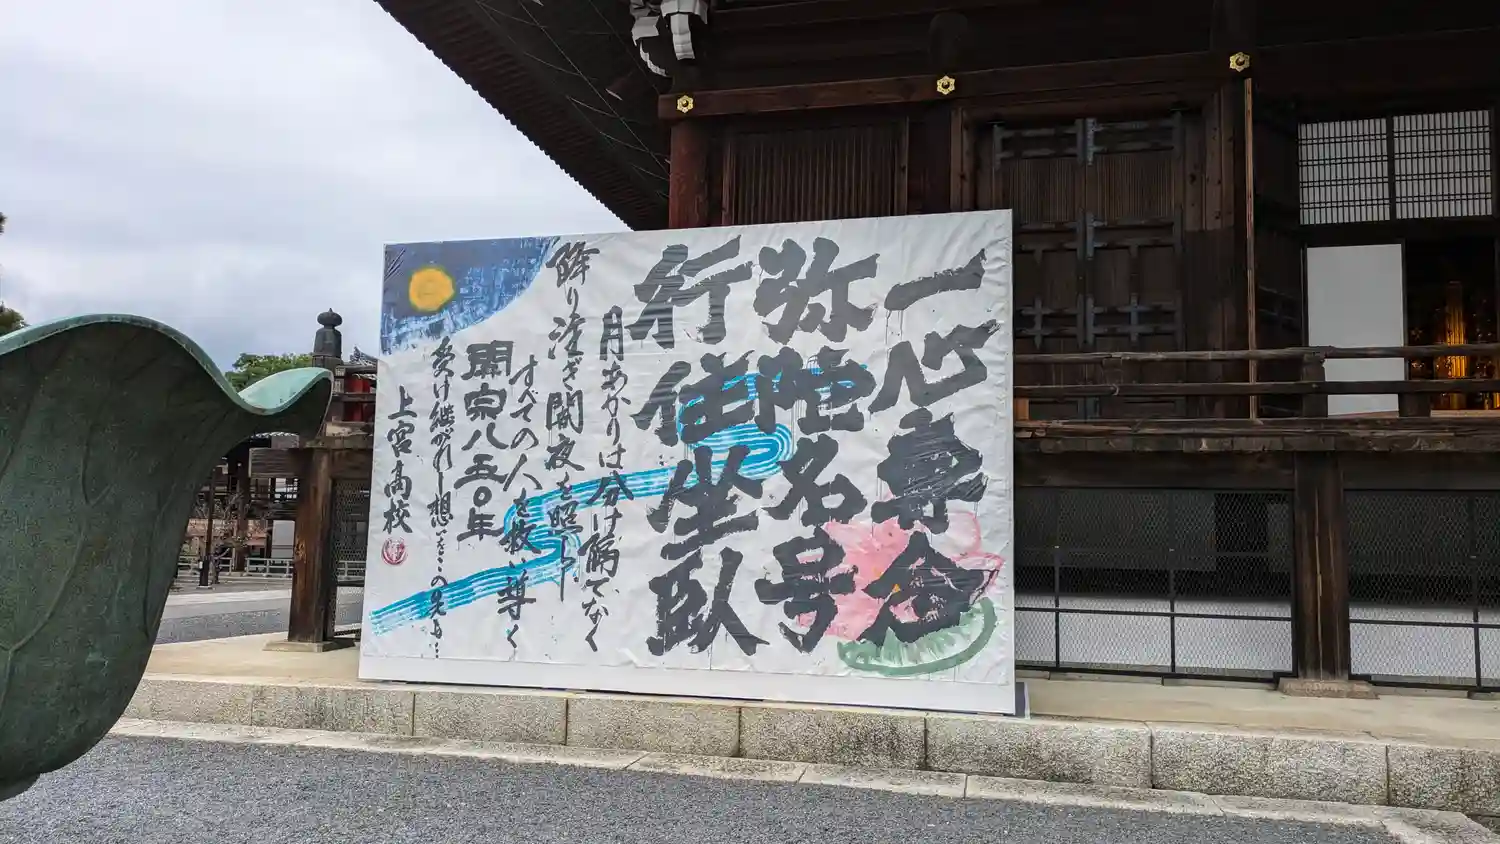 一心専念
弥陀名号
行住坐臥
月あかりは分け隔てなく
降り注ぎ闇夜を照らし
すべての人を救い導く
開宗八五〇年
受け継がれし想いをこの先も…
上宮高校